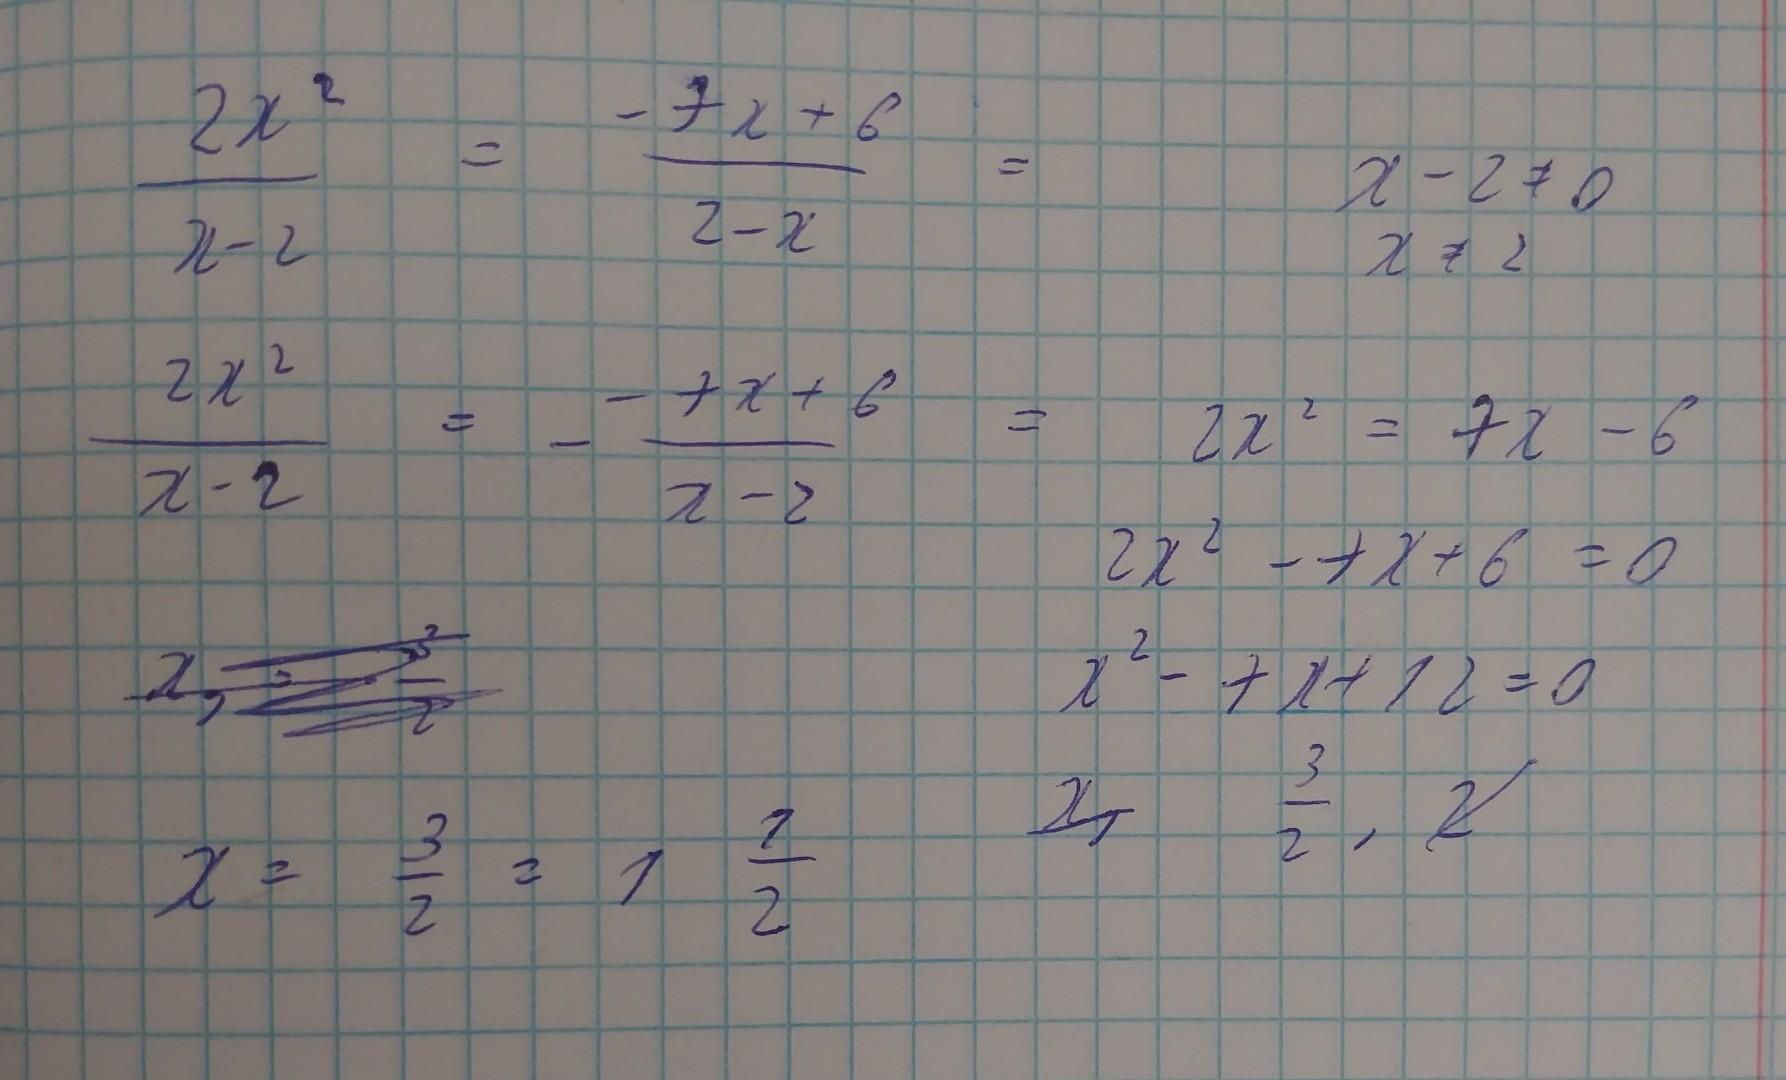 2x² / x-2 = -7x+6 / 2-x =
x-2≠0
x≠2
2x² / x-2 = - -7x+6 / x-2 = 2x² = 7x-6
2x² -7x+6 =0
x² - 7x+12=0
3/2, 2
x = 3/2 = 1 1/2